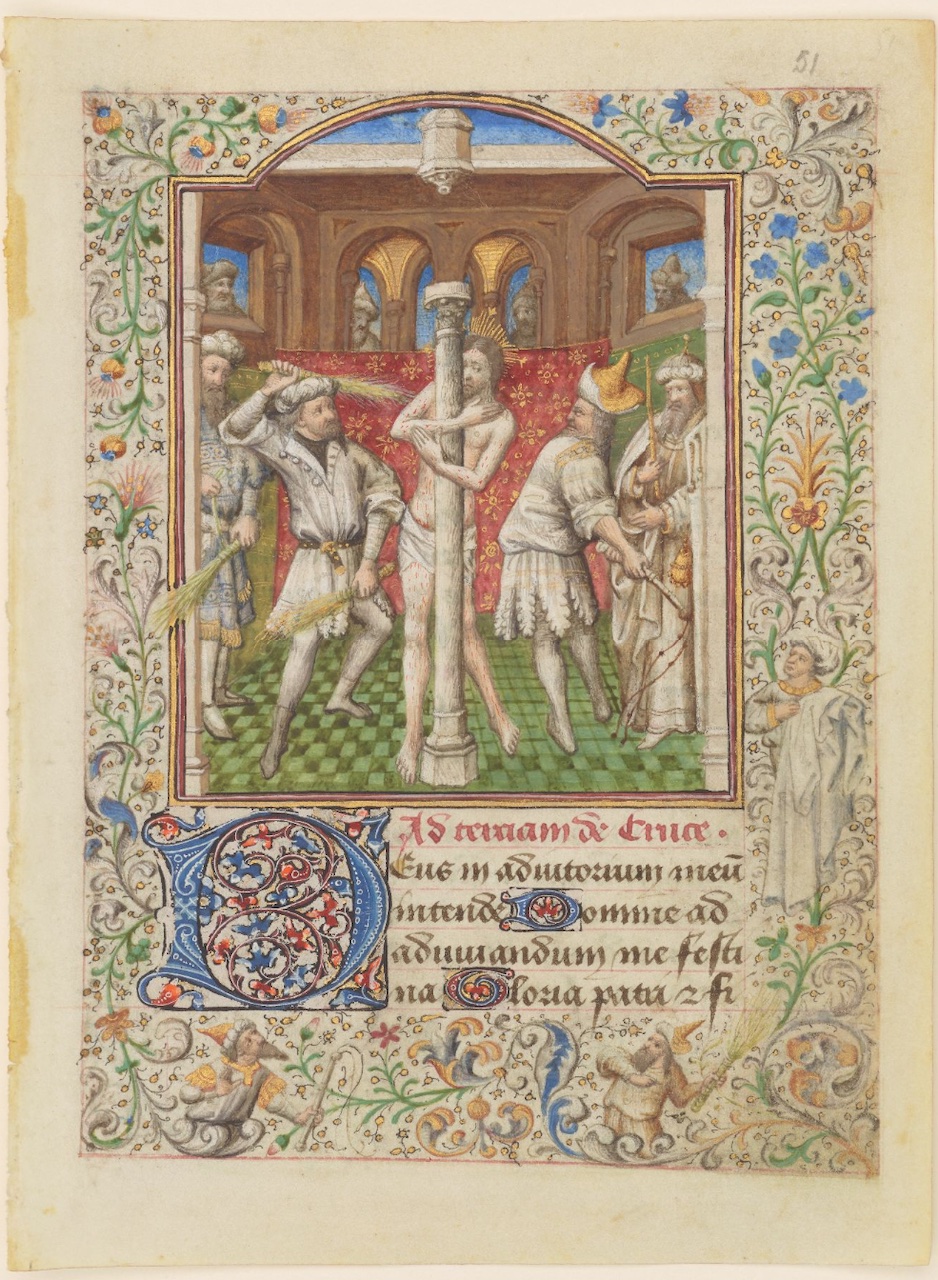 51
Ad terciam de Cruce.
Deus in adiutorium meū
intende Domine ad
adiuuandum me festi
na Gloria patri ⁊ fi